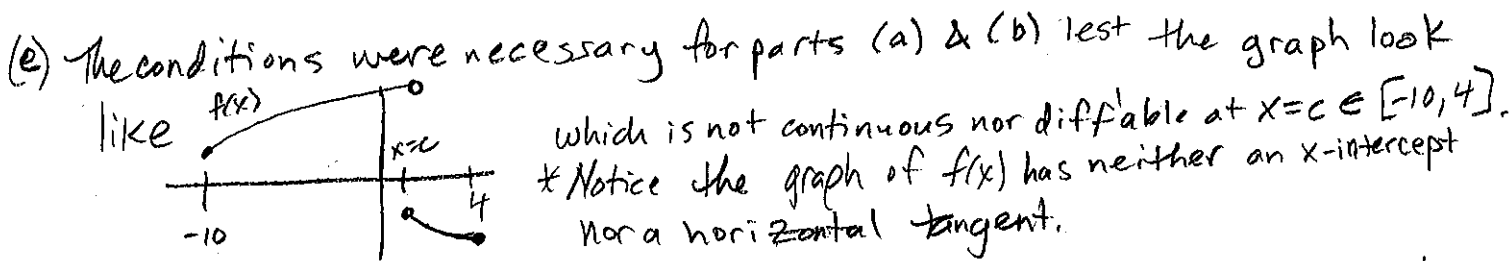 (e) The conditions were necessary for parts (a) & (b) lest the graph look
like f(x) which is not continuous nor diff'able at x=c ∈ [-10,4].
x=c
* Notice the graph of f(x) has neither an x-intercept
-10 4 nor a horizontal tangent.